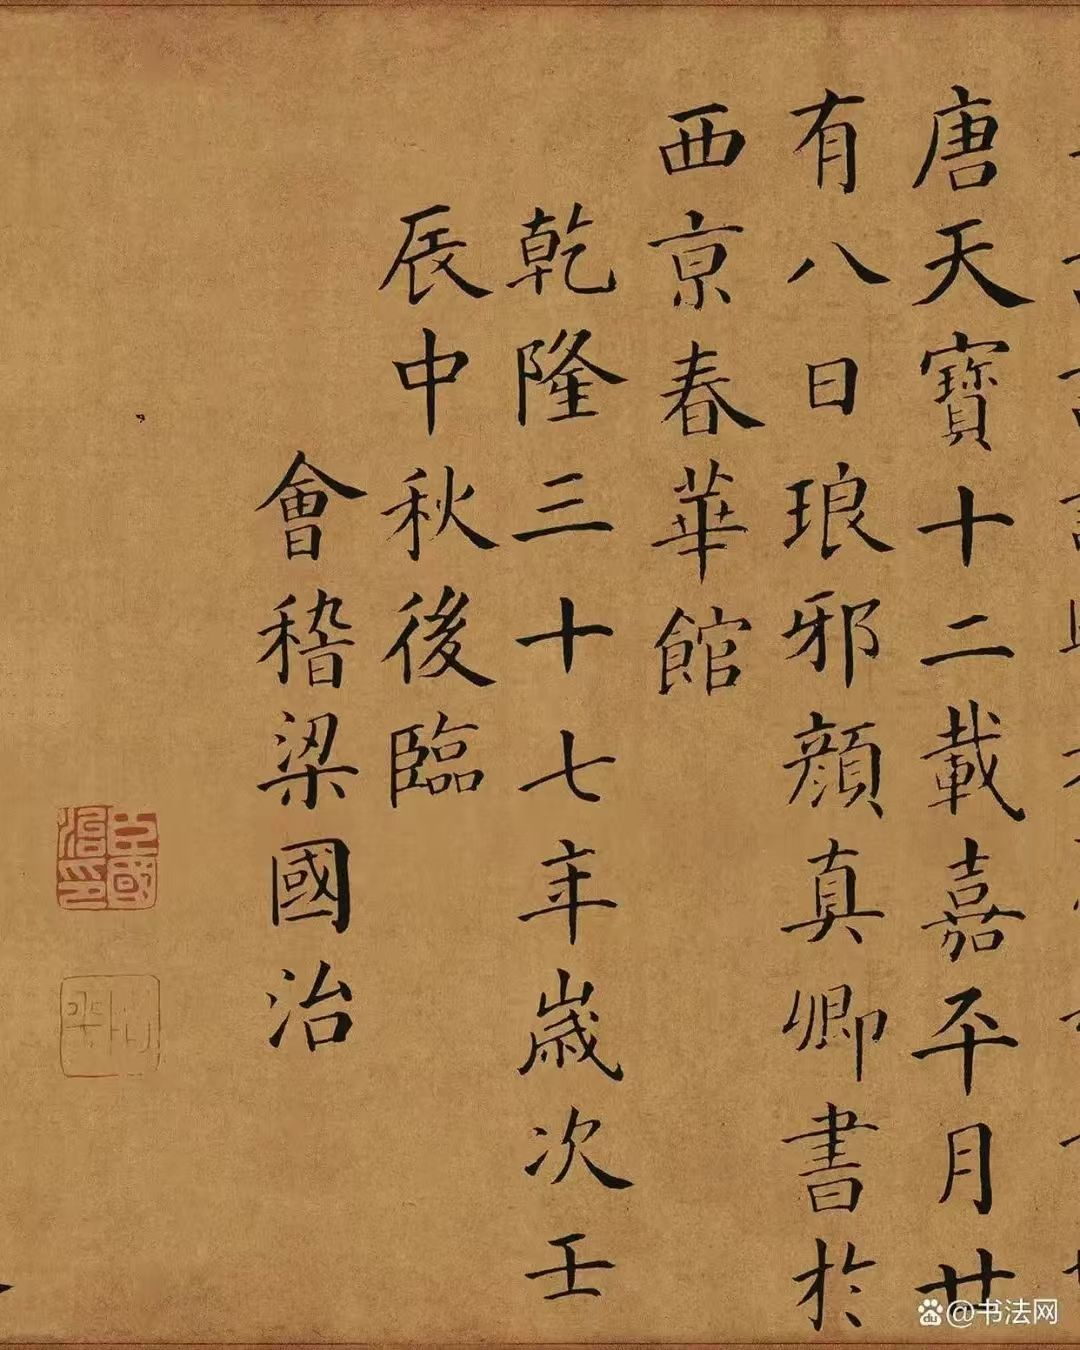 唐天寶十二載嘉平月廿
有八日琅邪顔真卿書於
西亰春華館
乾隆三十七年歲次壬
辰中秋後臨
會稽梁國治
臣國治印
@书法网